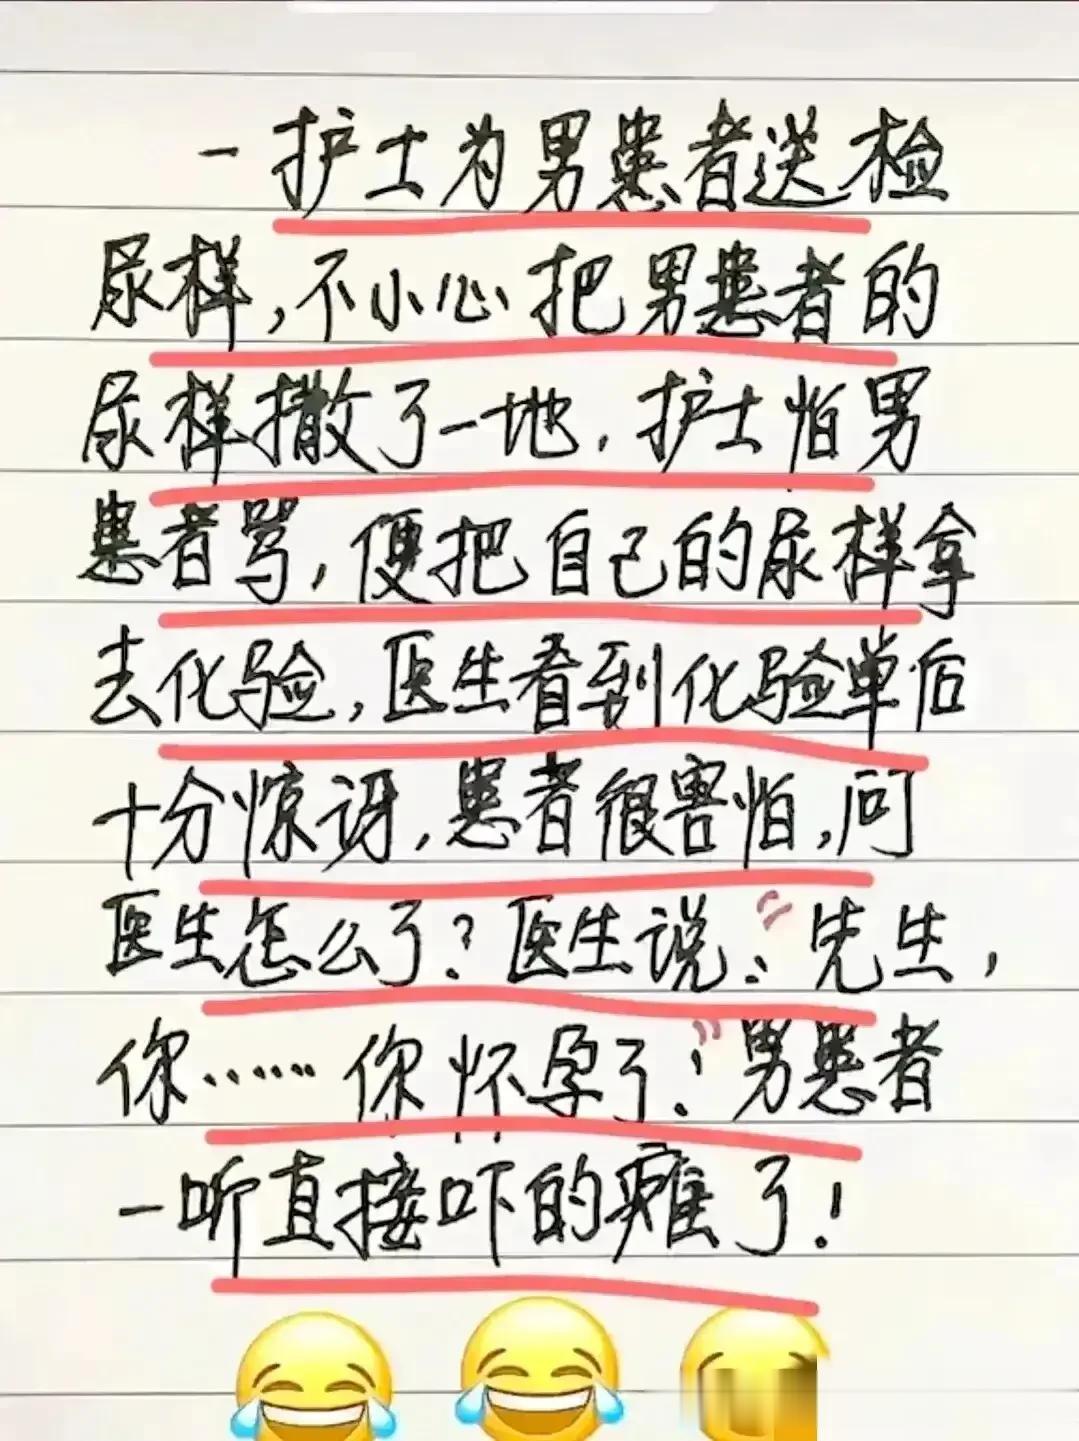 一护士为男患者送检
尿样,不小心把男患者的
尿样撒了一地,护士怕男
患者骂,便把自己的尿样拿
去化验,医生看到化验单后
十分惊讶,患者很害怕,问
医生怎么了?医生说:“先生,
你……你怀孕了!”男患者
一听直接吓的瘫了!